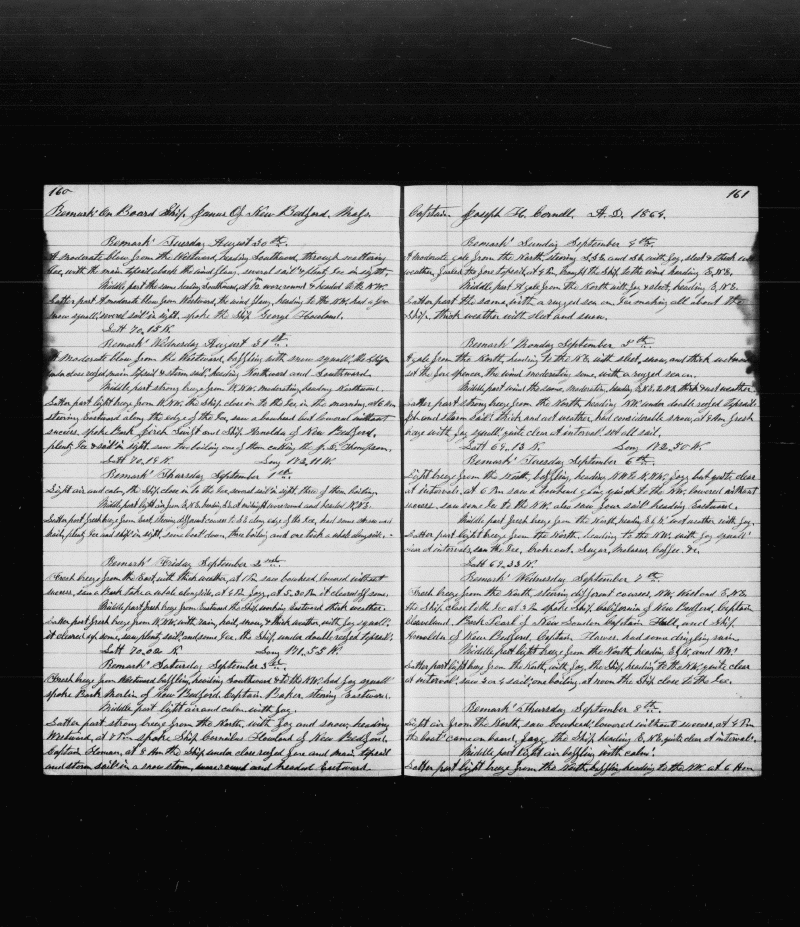 160
Remarks On Board Ship Janus Of New Bedford. Mass.
Remarks Tuesday August 30th.
A moderate blow from the Westward, heading Southward, through scattering
Ice, with the main topsail aback the wind flawy, several sails & plenty Ice in sight.
Middle part the same heading Southward, at 12 wore round & headed to the N.W.
Latter part A moderate blow from Westward, the wind flawy, heading to the NW. had a few
snow squalls, several sails in sight, spoke the Ship George Howland.
Latt 70,15 N.
Remarks Wednesday August 31st.
A Moderate blow from the Westward, baffling with snow squalls, the Ship
under close reefed main topsail & storm sails, heading Northward and Southward.
Middle part strong breeze from N.NW. moderating, heading Eastward.
Latter part light breeze from N.NW. the Ship close in to the Ice in the morning, at 6 Am
steering Eastward along the edge of the Ice, saw a bowhead but lowered without
success. spoke Bark Jireh Swift and Ship Arnolda of New Bedford,
plenty Ice & sails in sight. saw two boiling one of them cutting the J. D. Thompson.
Latt 70,19 N. Long 173,11 W.
Remarks Thursday September 1st.
Light airs and calm, the Ship close in to the Ice, several sails in sight, three of them boiling.
Middle part light air from
Latter part fresh breeze from East, steering different courses to
plenty Ice and ships in sight, some boats down, three boiling and one took a whale alongside.
Remarks Friday September 2nd.
Fresh breeze from the East, with thick weather, at 1 Pm saw bowhead lowered without
success, saw a Bark take a whale alongside, at 4 Pm foggy, at 5.30 Pm it cleared off some.
Middle part fresh breeze from Eastward the Ship working Eastward thick weather.
Latter part fresh breeze from N.NW. with rain, hail, snow, & thick weather, with fog squalls.
it cleared up some, saw plenty sails, and some Ice. the Ship under double reefed topsails.
Latt 70,02 N Long 171,53 W.
Remarks Saturday September 3rd.
Fresh breeze from Westward baffling, heading Southward & to the NW. had fog squalls
spoke Bark Merlin of New Bedford, Captain Baker, steering Eastward.
Middle part light air and calm with fog.
Latter part strong breeze from the North, with fog and snow, heading
Westward, at 7 Am spoke Ship Cornelius Howland of New Bedford,
Captain Homan, at 8 Am the Ship under close reefed fore and main topsail
and storm sails in a snow storm, wore round and headed Eastward.
161
Captain Joseph H. Cornell. A.D. 1864.
Remarks Sunday September 4th.
A moderate gale from the North, steering with fog, sleet & thick wet
weather, furled the fore topsail, at 4 Pm brought the Ship to the wind heading E.NE.
Middle part A gale from the North with fog & sleet, heading E.NE.
Latter part the same, with a rugged sea on, Ice making all about the
Ship, thick weather with sleet and snow.
Remarks Monday September 5th.
A gale from the North, heading to the NE. with sleet, snow, and thick weather
set the fore spencer, the wind moderating some, with a rugged sea on.
Middle part wind the same, moderating, heading thick & wet weather.
Latter part strong breeze from the North, heading NW. under double reefed topsails
Jib and Main Sail. thick and wet weather, had considerable snow, at 9 Am fresh
breeze with fog squalls, quite clear at intervals, set all sail.
Latt 69,13 N. Long 172,50 W.
Remarks Tuesday September 6th.
Light breeze from the North, baffling, heading foggy but quite clear
at intervals. at 6 Pm saw a bowhead going quick to the NW. lowered without
success. saw some Ice to the NW. also saw four sails heading Eastward.
Middle part fresh breeze from the North, heading wet weather with fog.
Latter part light breeze from the North, heading to the NW. with fog squalls
clear at intervals, saw the Ice, broke out Sugar, Molasses, Coffee &c.
Latt 69,33 N.
Remarks Wednesday September 7th.
Fresh breeze from the North, steering different courses, NW. West and E.NE.
the Ship close to the Ice at 3 Pm spoke Ship California of New Bedford, Captain
Cleaveland, Bark Pearl of New London Captain Hull, and Ship
Arnolda of New Bedford, Captain Hawes. had some drizzling rain.
Middle part light breeze from the North, heading E.NE. and NW.
Latter part light breeze from the North, with fog, the Ship heading to the NW. quite clear
at intervals. saw 3 or 4 sails, one boiling, at noon the Ship close to the Ice.
Remarks Thursday September 8th.
Light air from the North, saw bowheads lowered without success, at 4 Pm
the boats came on board, foggy, the Ship heading E.NE. quite clear at intervals.
Middle part light air baffling with calms.
Latter part light breeze from the North, baffling, heading to the NW. at 6 Am